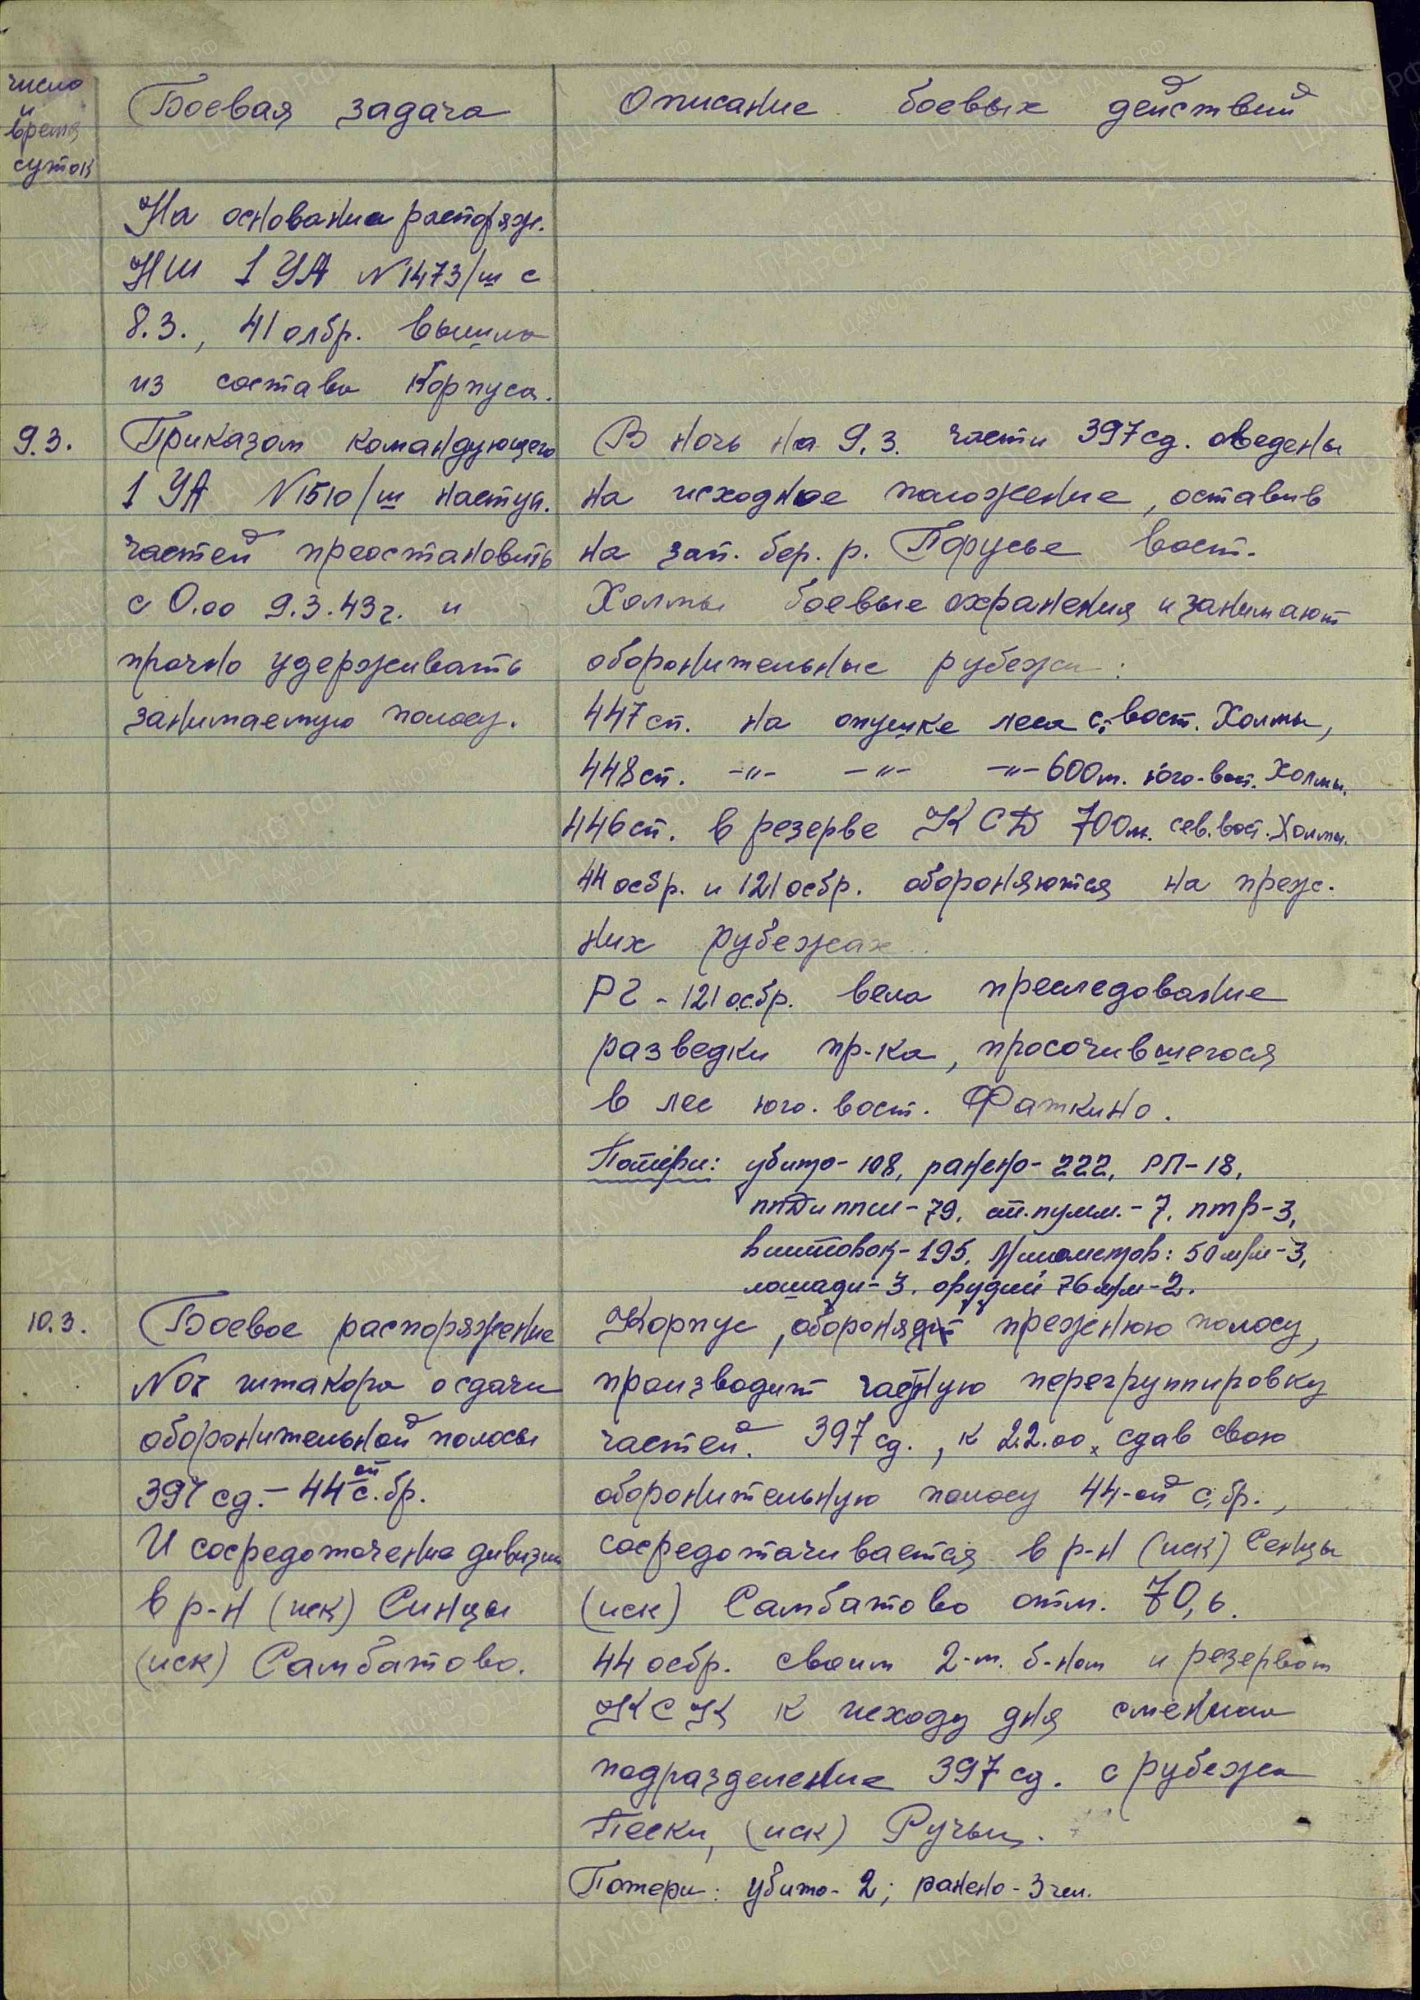 число
и
время
суток
Боевая задача
Описание боевых действий
На основании распоряж.
НШ 1 УА №1473/ш с
8.3., 41 олбр. вышла
из состава Корпуса.
9.3.
Приказом командующего
1 УА №1510/ш наступ.
частей преостановить
с 0.00 9.3.43г. и
прочно удерживать
занимаемую полосу.
В ночь на 9.3. части 397сд. отведены
на исходное положение, оставив
на зап. бер. р. Порусье вост.
Холмы боевые охранения и занимают
оборонительные рубежи:
447сп. на опушке леса с. вост. Холмы,
448сп. -"- -"- -"- 600м. юго-вост. Холмы.
446сп. в резерве КСД 700м. сев. вост. Холмы.
44 осбр. и 121 осбр. обороняются на преж.
них рубежах.
РГ - 121 осбр. вела преследование
разведки пр-ка, просочившегося
в лес юго. вост. Фаткино.
Потери: убито- 108, ранено- 222, РП-18,
ппД и ппш - 79, ст. пулм. - 7, птр-3,
винтовок- 195, Минометов: 50м/м-3,
лошади-3. орудий 76м/м-2.
10.3.
Боевое распоряжение
№07 штакора о сдачи
оборонительной полосы
397сд. - 44ой с.бр.
И сосредоточение дивизии
в р-н (иск) Синцы
(иск) Самбатово.
Корпус, обороняя прежнюю полосу,
производит частную перегруппировку
частей. 397сд., к 22.00, сдав свою
оборонительную полосу 44-ой с.бр.,
сосредотачивается в р-н (иск) Сенцы
(иск) Самбатово отм. 70,6.
44 осбр. своим 2-м. б-ном и резервом
КСК к исходу дня сменила
подразделение 397сд. с рубежа
Пески, (иск) Ручьи.
Потери: убито- 2; ранено- 3 чел.